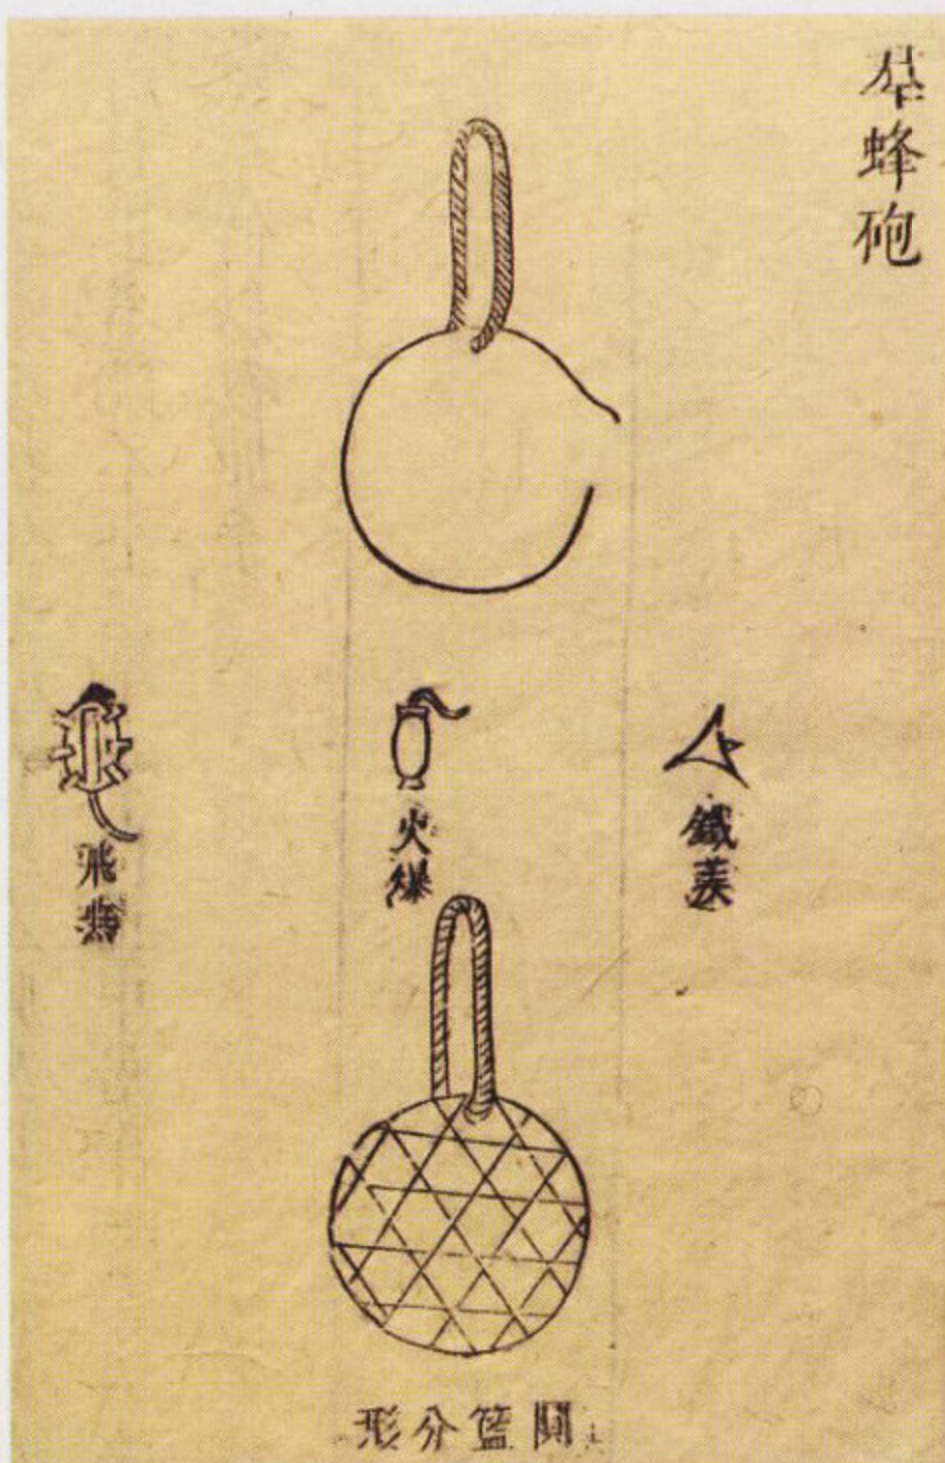 蜂砲
鐵蒺
火爆
飛燕
圓籃分形